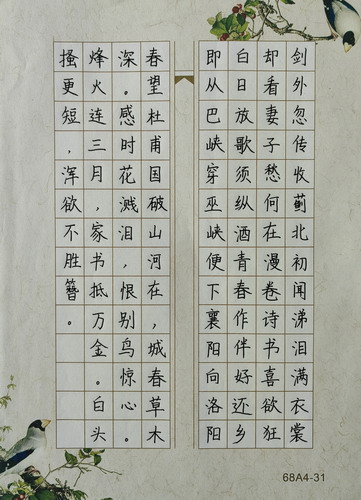 剑外忽传收蓟北初闻涕泪满衣裳
却看妻子愁何在漫卷诗书喜欲狂
白日放歌须纵酒青春作伴好还乡
即从巴峡穿巫峡便下襄阳向洛阳
春望杜甫国破山河在，城春草木
深。感时花溅泪，恨别鸟惊心。
烽火连三月，家书抵万金。白头
搔更短，浑欲不胜簪。
68A4-31